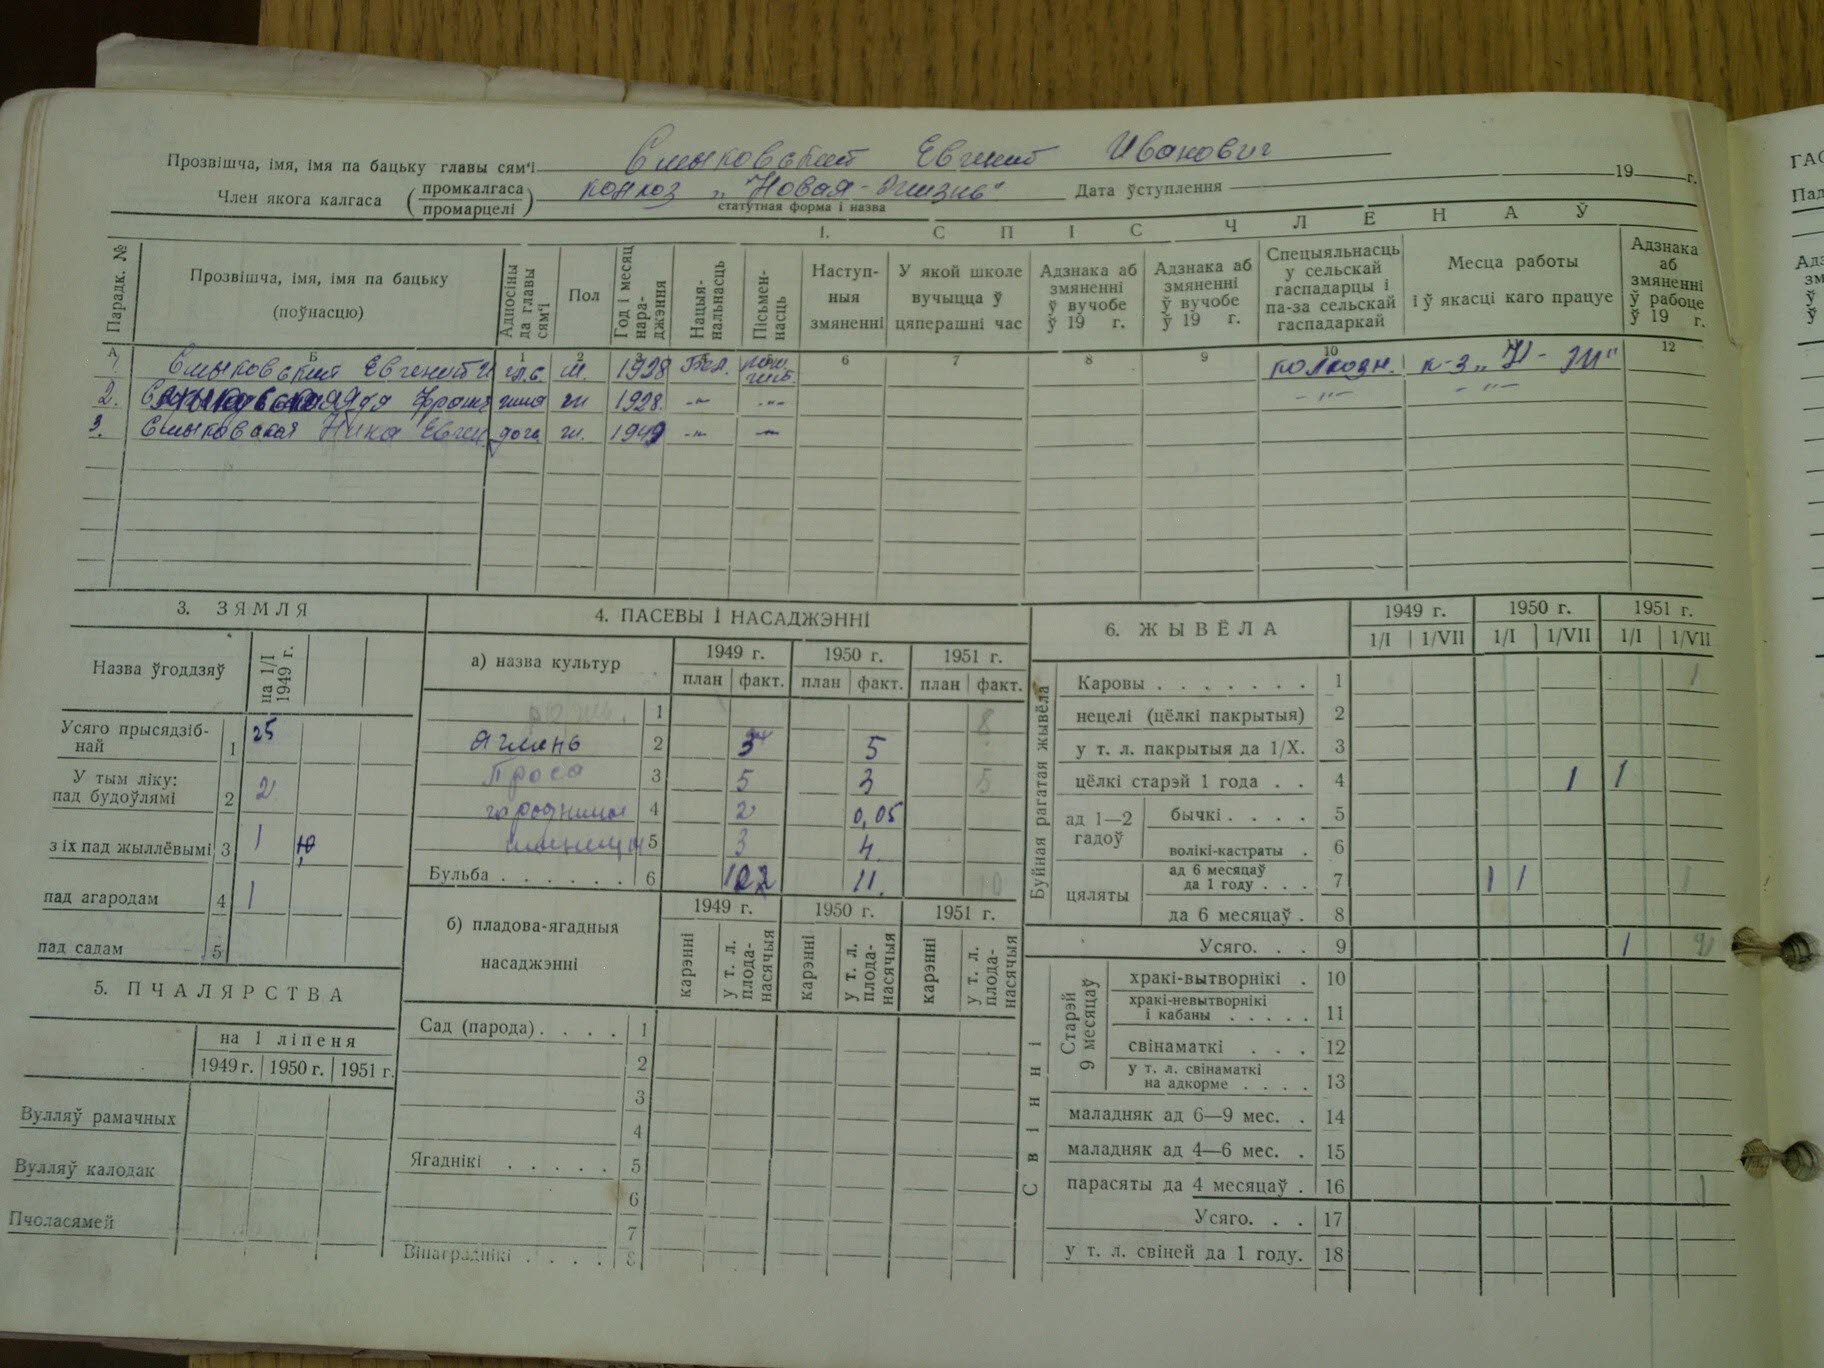 Прозвішча, імя, імя па бацьку главы сям'і Смыковский Евгений Иванович
Член якога калгаса (промкалгаса промарцелі) колхоз „Новая-жизнь" Дата ўступлення 19 г.
статутная форма і назва
1. СПІС ЧЛЕНАЎ
Парадк. № Прозвішча, імя, імя па бацьку (поўнасцю) Адносіны да главы сям'і Пол Год і месяц нараджэння Нацыянальнасць Пісьменнасць Наступныя змяненні У якой школе вучыцца ў цяперашні час Адзнака аб змяненні ў вучобе ў 19 г. Адзнака аб змяненні ў вучобе ў 19 г. Спецыяльнасць у сельскай гаспадарцы і па-за сельскай гаспадаркай Месца работы і ў якасці каго працуе Адзнака аб змяненні ў рабоце ў 19 г.
А Б 1 2 3 4 5 6 7 8 9 10 11 12
1. Смыковский Евгений И гл.с. м. 1928 Бел. колхозн. к-з „Н-Ж"
2. Ядя жена ж 1928. -„- -„- -„- -„-
3. Смыковская Нина Евген дочь ж. 1949 -„- —
3. ЗЯМЛЯ
Назва ўгоддзяў на 1/I 1949 г.
Усяго прысядзібнай 1 25
У тым ліку: пад будоўлямі 2 2
з іх пад жыллёвымі 3 1
пад агародам 4 1
пад садам 5
5. ПЧАЛЯРСТВА
на 1 ліпеня
1949 г. 1950 г. 1951 г.
Вулляў рамачных
Вулляў калодак
Пчоласямей
4. ПАСЕВЫ І НАСАДЖЭННІ
а) назва культур 1949 г. 1950 г. 1951 г.
план факт. план факт. план факт.
рожь. 1 8
ячмень 2 5
Просо 3 5 3 5
городнина 4 2 0,05
пшеница 5 3 4
Бульба . . . . . . 6 11. 10
б) пладова-ягадныя насаджэнні 1949 г. 1950 г. 1951 г.
карэнні у т. л. пладанасячыя карэнні у т. л. пладанасячыя карэнні у т. л. пладанасячыя
Сад (парода) . . . . 1
2
3
4
Ягаднікі . . . . . 5
6
7
Вінаграднікі . . . . 8
6. ЖЫВЁЛА 1949 г. 1950 г. 1951 г.
1/I 1/VII 1/I 1/VII 1/I 1/VII
Буйная рагатая жывёла
Каровы . . . . . . . 1 1
нецелі (цёлкі пакрытыя) 2
у т. л. пакрытыя да 1/X. 3
цёлкі старэй 1 года . . 4 1 1
ад 1—2 гадоў бычкі . . . . 5
волікі-кастраты . 6
цяляты ад 6 месяцаў да 1 году . . . 7 1 1 1
да 6 месяцаў . 8
Усяго. . . 9 1
Свінні
Старэй 9 месяцаў
хракі-вытворнікі . 10
хракі-невытворнікі і кабаны . . . . . 11
свінаматкі . . . 12
у т. л. свінаматкі на адкорме . . . . 13
маладняк ад 6—9 мес. . 14
маладняк ад 4—6 мес. . 15
парасяты да 4 месяцаў . 16 1
Усяго. . . 17
у т. л. свіней да 1 году. 18